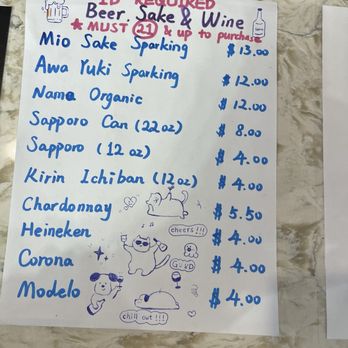 ID REQUIRED
Beer, Sake & Wine
* MUST 21 & up to purchase
Mio Sake Sparking $13.00
Awa Yuki Sparking $12.00
Nama Organic $12.00
Sapporo Can (22oz) $8.00
Sapporo (12 oz) $4.00
Kirin Ichiban (12oz) $4.00
Chardonnay $5.50
Heineken $4.00
cheers!!!
Corona $4.00
GOOD
Modelo $4.00
chill out!!!